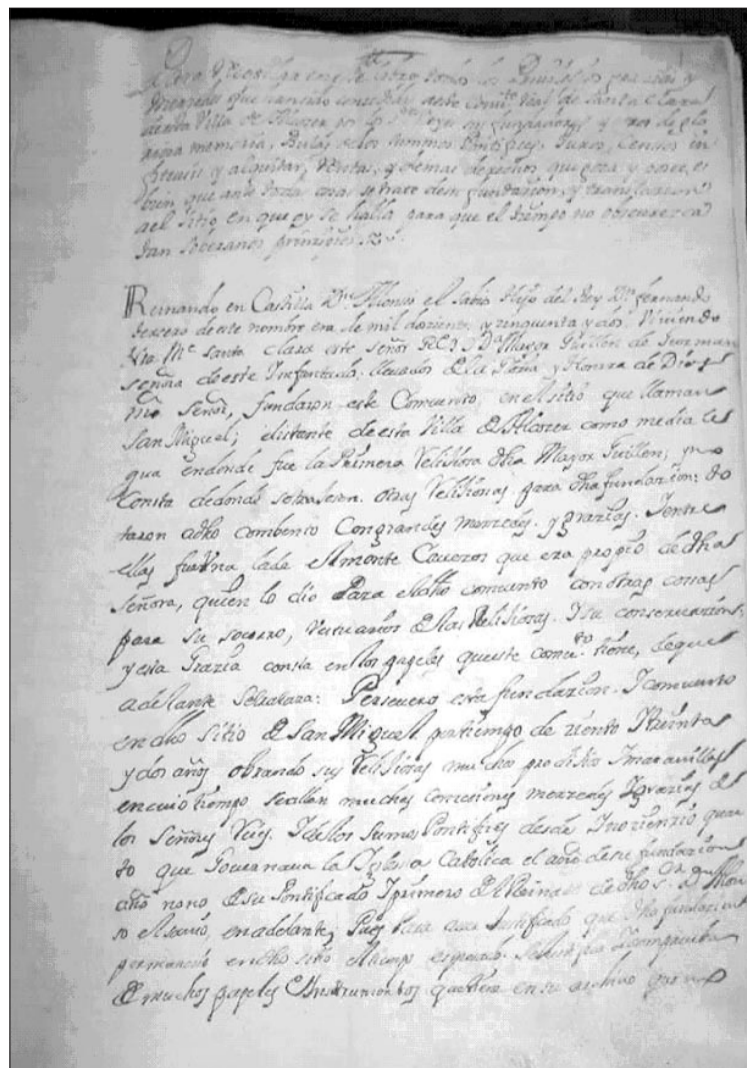 en este libro todos los Privilejios reales y
mercedes que han sido concedidas a este Comv.to Real de Santa Clara
de esta Villa de Alcozer por los S.res Reyes sus fundadores y otros de glo
riosa memoria, Bulas de los summos Pontifices, Juros, Censos in
y alquitar, Rentas, y demas derechos que goza y posee, si
bien que ante todas cosas se trate de su fundazion, y translazion
del sitio en que oy se halla para que el tiempo no obscurezca
tan soberanos prinzipios
Reinando en Castilla D.n Alonso el Sabio Hijo del Rey D.n fernando
terzero de este nombre era de mil dozientos y zinquenta y dos, Viviendo
Nra M.e Santa Clara este señor Rey D.a Mayor Guillen de Guzman
señora de este Infantado; llevados de la Gloria y Honrra de Dios
nro Señor, fundaron este Comvento, en el sitio que llaman
San Miguel; distante de esta Villa de Alcozer como media le
gua endonde fue la Primera Relijiosa dha Mayor Guillen; y no
Consta de donde otras Relijiosas para dha fundazion; do
taron a dho combento Con grandes merzedes y grazias. Y entre
ellas fue Una la de el monte que era propio de dha
señora, quien lo dio Para el dho comvento con otras cosas
para su socorro, de las Relijiosas. Y su conservazion;
y esta Grazia consta en los papeles que este comv.to tiene, de que
adelante se tratara: Persevero esta fundazion. Y comvento
en dho sitio de San Miguel por tiempo de ziento treinta
y dos años obrando sus Relijiosas muchos prodijios Y maravillas
en cuio tiempo se allan muchas conzesiones merzedes Y grazias de
los Señores Reies. Y de los Sumos Pontifizes desde Ynozenzio quar
to que Governava la Yglesia Catolica el año de su fundazion
año nono de su Pontificado Y primero del Reinado de dho S. D.n Alon
so el Savio, en adelante, Pues Para aver Justificado que dha fundazion
permanezio en dho sitio el tiempo espresado
de muchos papeles e Ynstrumentos que tiene en su archivo que